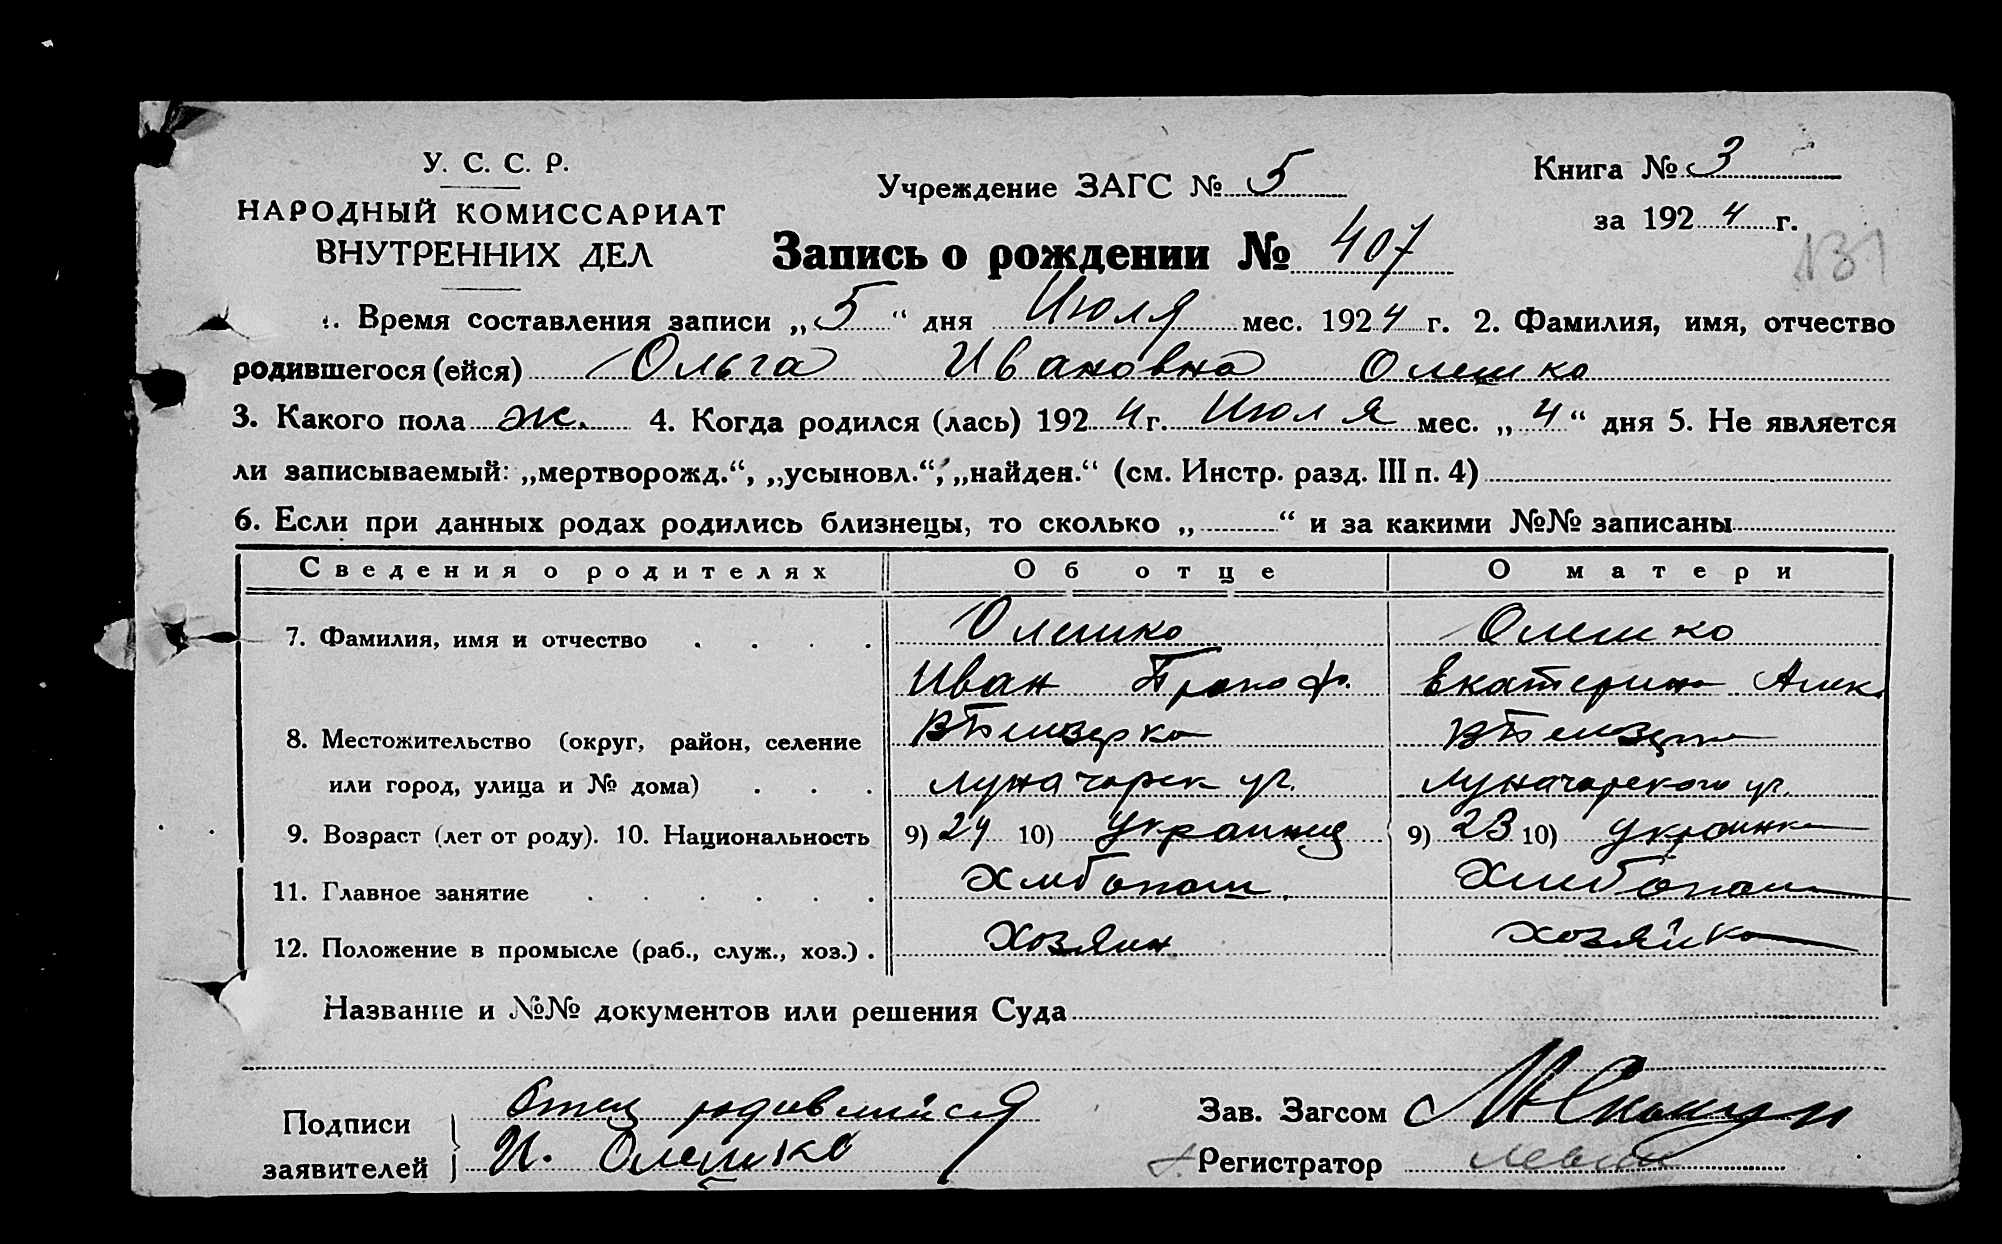 У. С. С. Р.
НАРОДНЫЙ КОМИССАРИАТ
ВНУТРЕННИХ ДЕЛ
Учреждение ЗАГС № 5
Книга № 3
за 1924 г.
Запись о рождении № 407
131
1. Время составления записи „5“ дня Июля мес. 1924 г. 2. Фамилия, имя, отчество
родившегося (ейся) Ольга Ивановна Олешко
3. Какого пола ж. 4. Когда родился (лась) 1924 г. Июля мес. „4“ дня 5. Не является
ли записываемый: „мертворожд.“, „усыновл.“, „найден.“ (см. Инстр. разд. III п. 4)
6. Если при данных родах родились близнецы, то сколько „ “ и за какими №№ записаны
Сведения о родителях Об отце О матери
7. Фамилия, имя и отчество Олешко Олешко
Иван Прокоф. Екатерина Алек.
8. Местожительство (округ, район, селение
или город, улица и № дома) Луначарск ул. Луначарского ул.
9. Возраст (лет от роду). 10. Национальность 9) 24 10) Украинец 9) 23 10) Украинка
11. Главное занятие Хлебопаш. Хлебопаш
12. Положение в промысле (раб., служ., хоз.) Хозяин Хозяйка
Название и №№ документов или решения Суда
Подписи
заявителей
Отец родившийся
И. Олешко
Зав. Загсом
Регистратор